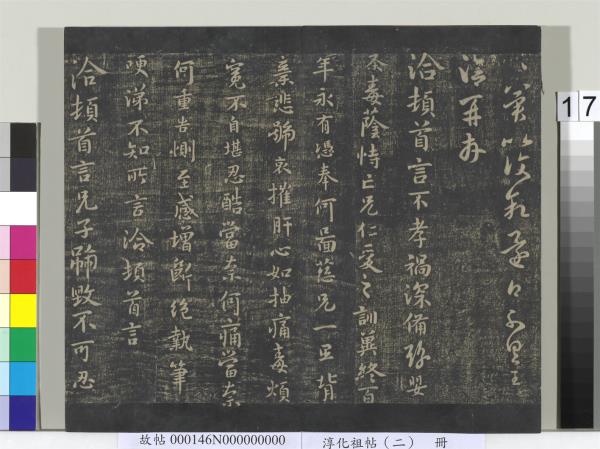 不具王
洽再拜
洽頓首言不孝禍深備豫嬰
荼毒蔭恃亡兄仁愛之訓冀終百
年永有憑奉何圖慈兄一旦背
棄悲號哀摧肝心如抽痛毒煩
冤不自堪忍酷當奈何痛當奈
何重告惻至感增斷絕執筆
哽涕不知所言洽頓首言
洽頓首言兄子毀不可忍
17
故帖 000146N000000000
淳化祖帖（二） 冊